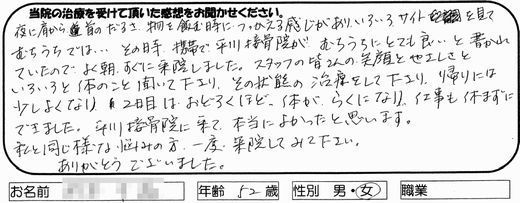 当院の治療を受けて頂いた感想をお聞かせください。
夜に肩から 前のだるさ、物を飲む時につっかえる感じがあり、いろいろサイトを見て
むちうちでは… その時、携帯で平川接骨院が、むちうちにとても良いと書かれ
ていたので、よく朝、すぐに来院しました。スタッフの皆さんの笑顔と優しさと
いろいろと体のこと聞いて下さり、その状態の治療をして下さり、帰りには
少しよくなり、2日目はおどろくほど、体が、らくになり、仕事も休まずに
できました。平川接骨院に来て、本当によかったと思います。
私と同じ様な悩みの方、一度、来院してみて下さい。
ありがとうございました。
お名前 年齢 52歳 性別 男・女 職業